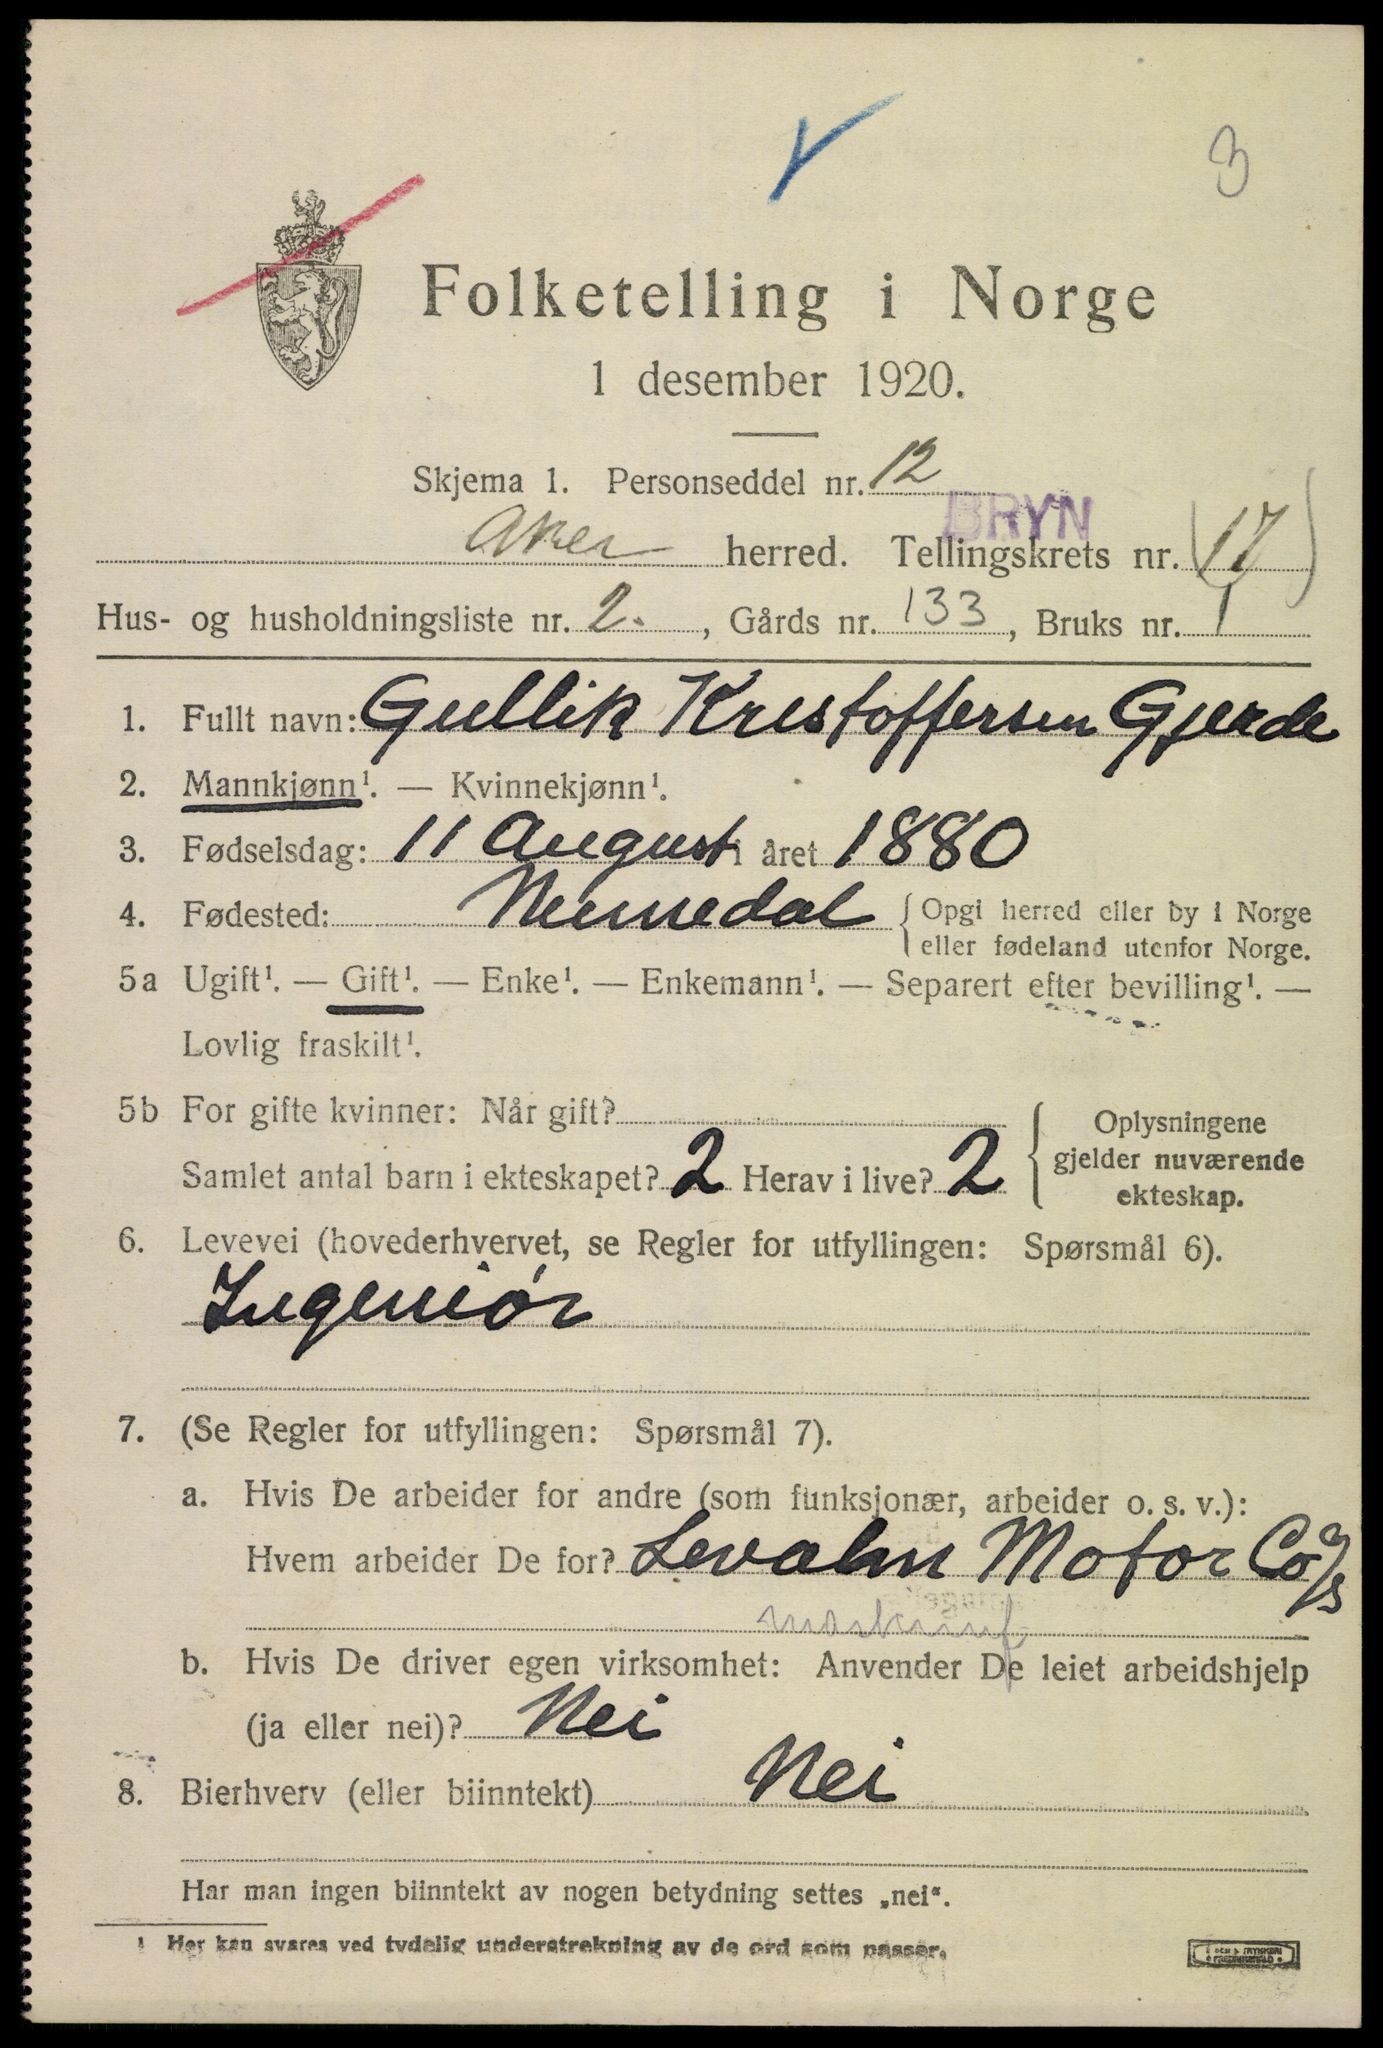 3
Folketelling i Norge
1 desember 1920.
Skjema 1. Personseddel nr. 12
BRYN
Aker herred. Tellingskrets nr. (17)
Hus- og husholdningsliste nr. 2. , Gårds nr. 133 , Bruks nr. 1
1. Fullt navn: Gullik Kristoffersen Gjerde
2. Mannkjønn¹. — Kvinnekjønn¹.
3. Fødselsdag: 11 August i året 1880
4. Fødested: Numedal { Opgi herred eller by i Norge
eller fødeland utenfor Norge.
5a Ugift¹. — Gift¹. — Enke¹. — Enkemann¹. — Separert efter bevilling¹. —
Lovlig fraskilt¹.
5b For gifte kvinner: Når gift?
Samlet antal barn i ekteskapet? 2 Herav i live? 2
Oplysningene
gjelder nuværende
ekteskap.
6. Levevei (hovederhvervet, se Regler for utfyllingen: Spørsmål 6).
Ingeniør
7. (Se Regler for utfyllingen: Spørsmål 7).
a. Hvis De arbeider for andre (som funksjonær, arbeider o. s. v.):
Hvem arbeider De for? Levahn Motor Co a/s
b. Hvis De driver egen virksomhet: Anvender De leiet arbeidshjelp
(ja eller nei)? Nei
8. Bierhverv (eller biinntekt) Nei
Har man ingen biinntekt av nogen betydning settes „nei“.
1 Her kan svares ved tydelig understrekning av de ord som passer.